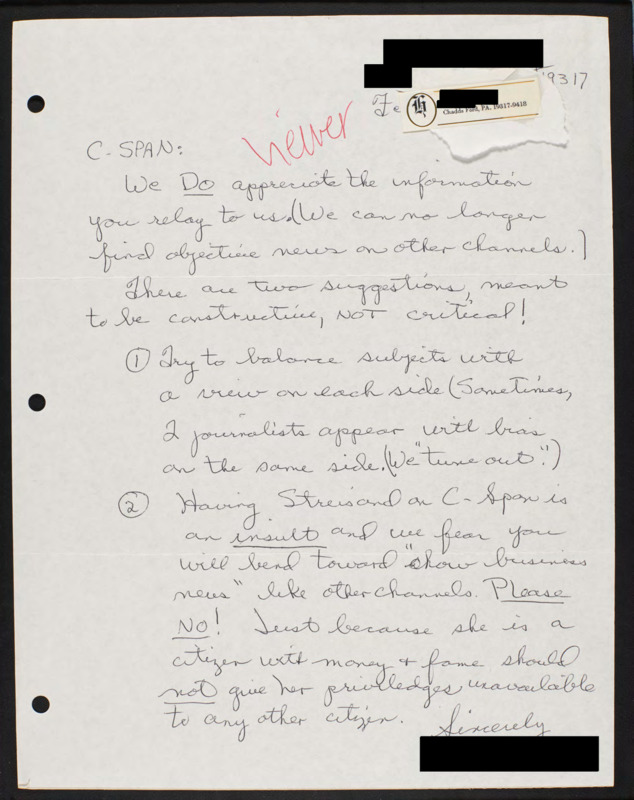 19317
Fe
h
Chadds Ford, PA. 19317-0418
Viewer
C-SPAN:
We DO appreciate the information
you relay to us. (We can no longer
find objective news on other channels.)
There are two suggestions, meant
to be constructive, NOT critical!
① Try to balance subjects with
a view on each side (Sometimes,
2 journalists appear with bias
on the same side. (We "tune out".)
② Having Streisand on C-Span is
an insult and we fear you
will bend toward "show business
news" like other channels. PLease
NO! Just because she is a
citizen with money + fame should
not give her priviledges unavailable
to any other citizen.
Sincerely